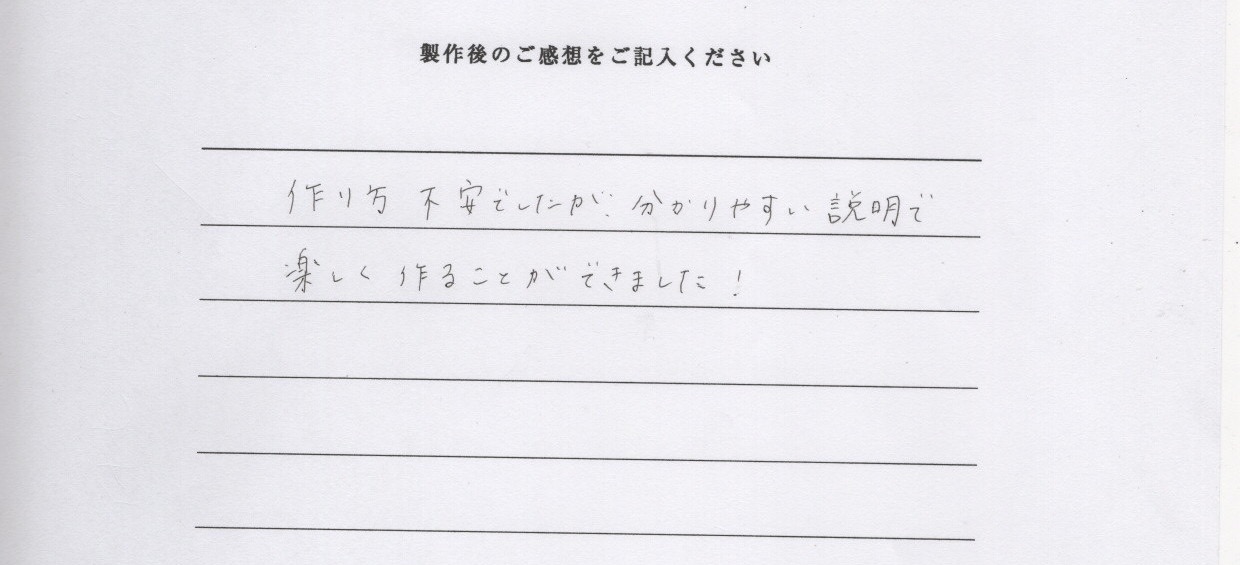 製作後のご感想をご記入ください
作り方 不安でしたが、分かりやすい 説明で
楽しく 作ることができました!